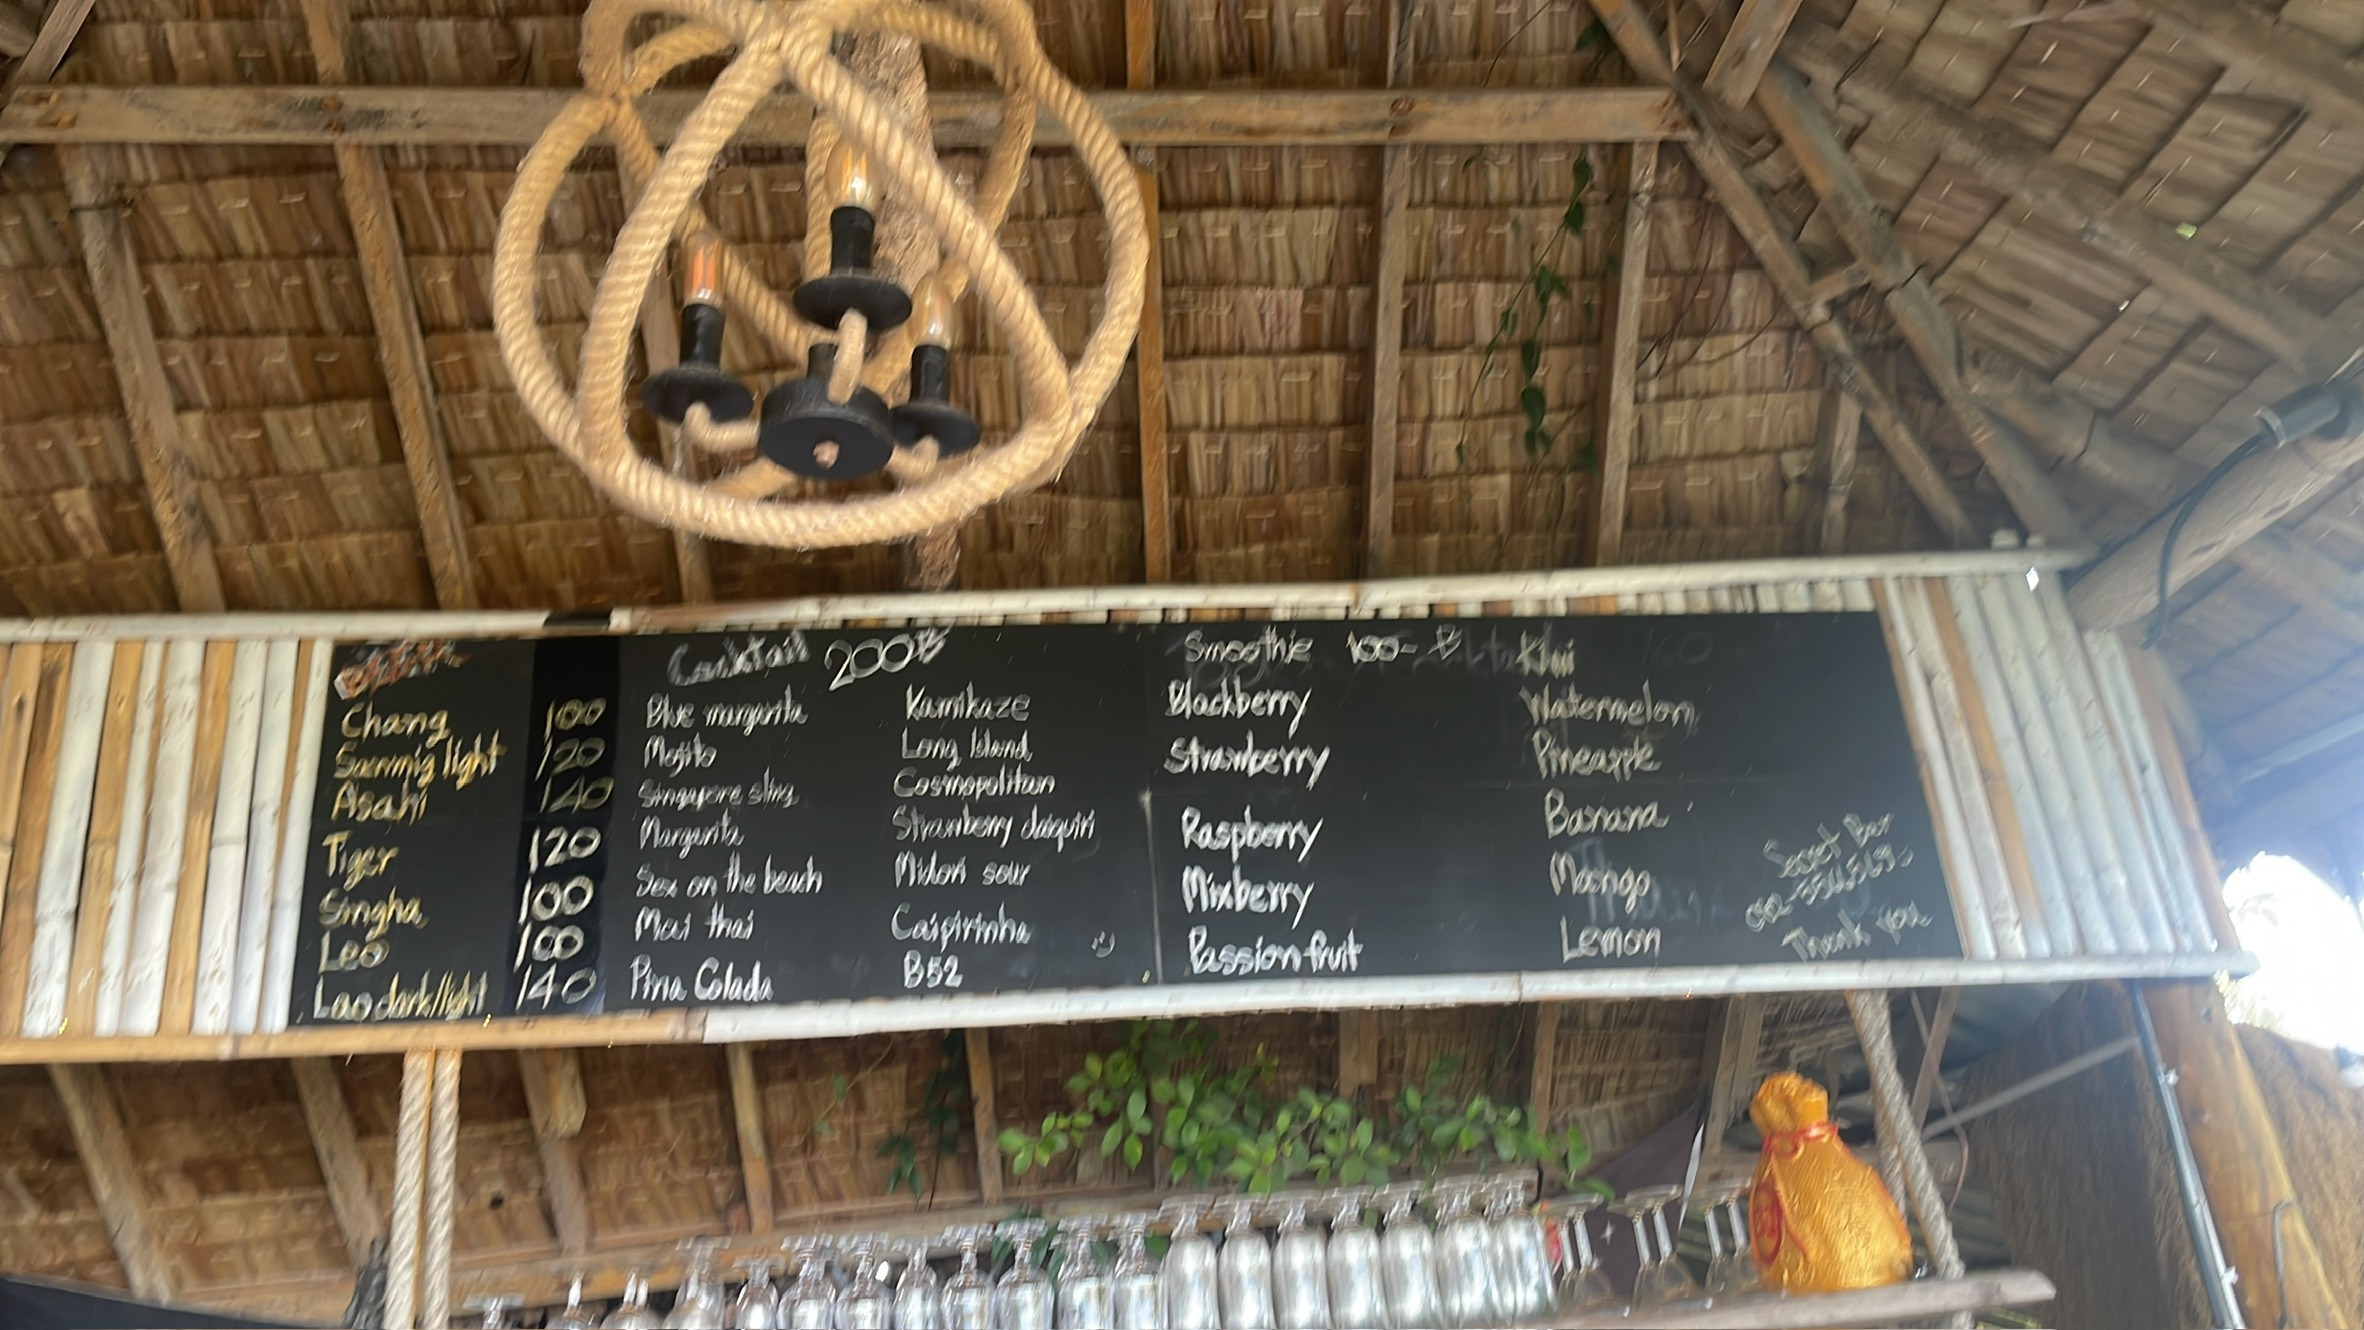 Chang 100
Sanmig light 120
Asahi 140
Tiger 120
Singha 100
Leo 100
Lao dark/light 140
Cocktail 200฿
Blue margarita
Mojito
Singapore sling
Margarita
Sex on the beach
Mai thai
Pina Colada
Kamikaze
Long Island
Cosmopolitan
Strawberry daiquiri
Midori sour
Caipirinha
B52
Smoothie 100-฿
Blackberry
Strawberry
Raspberry
Mixberry
Passion fruit
Kiwi
Watermelon
Pineapple
Banana
Mango
Lemon
Secret Bar
Thank you